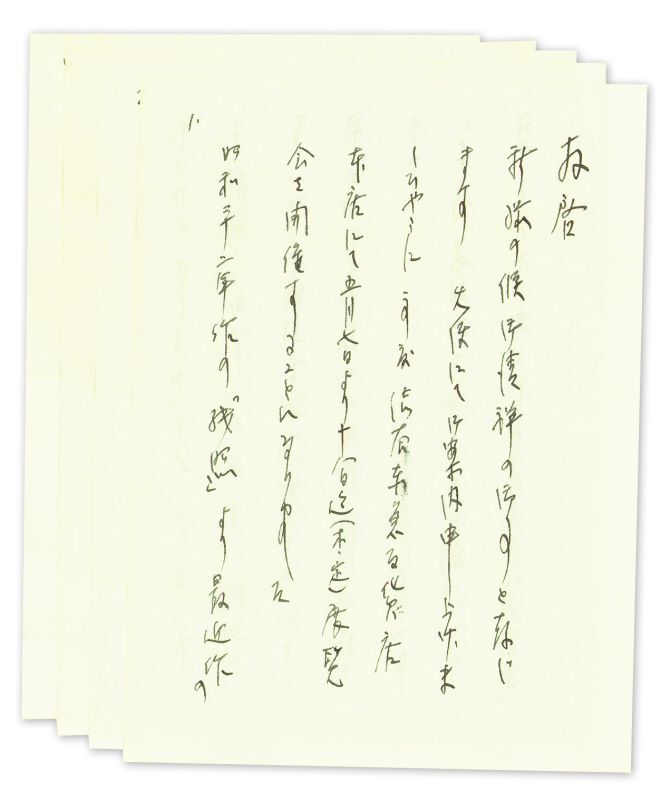 拝啓
新緑の候 御清祥の御事と存じ
ます にて御案内申し上
やうに 渋谷東急百貨店
本店にて五月七日より十八日迄(木・定)展覧
会を開催することになりました
昭和三十二年作の「残照」より最近作の